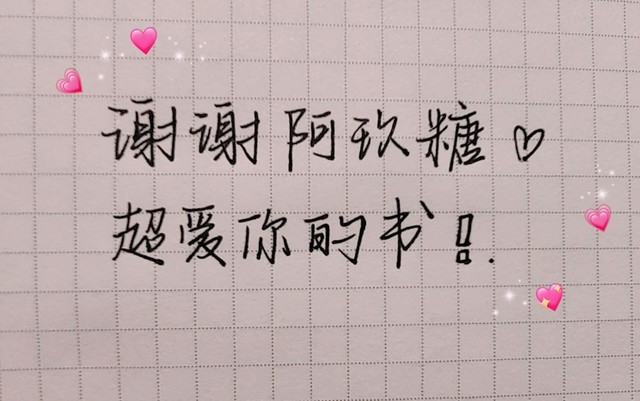 谢谢阿玖糖♡
超爱你的书!.